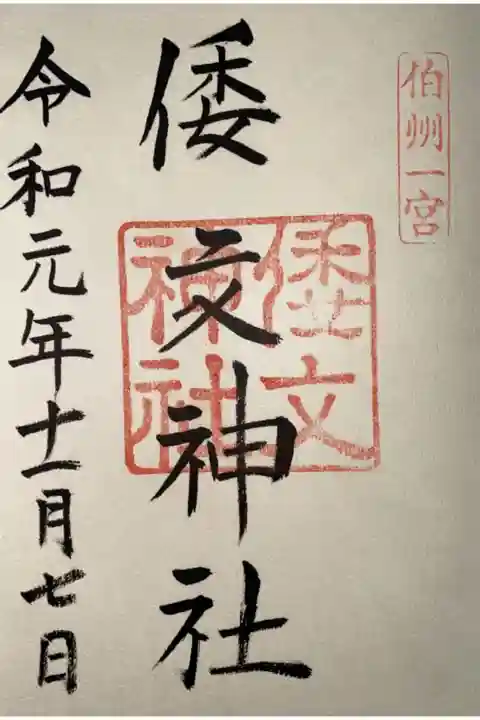 伯州一宮
倭文神社
倭文神社
令和元年十一月七日